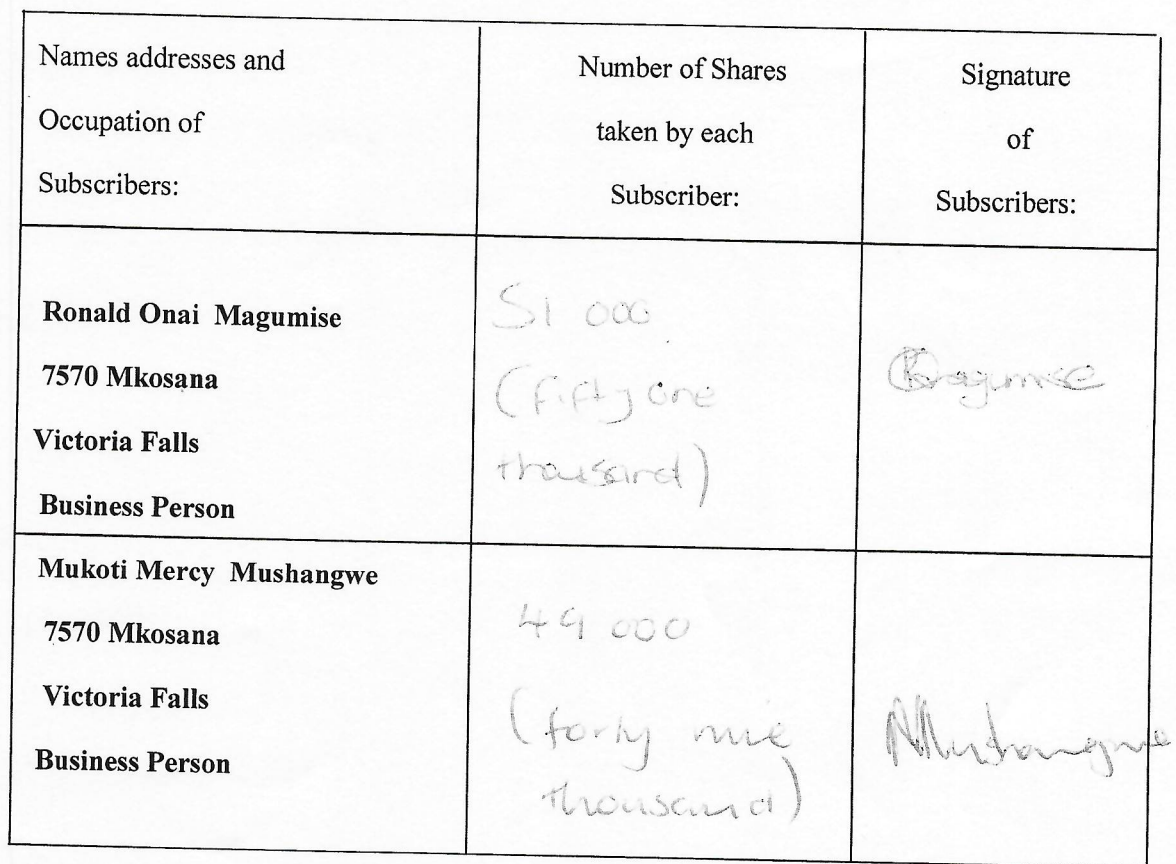 Names addresses and
Occupation of
Subscribers:
Number of Shares
taken by each
Subscriber:
Signature
of
Subscribers:
Ronald Onai Magumise
7570 Mkosana
Victoria Falls
Business Person
51 000
(fifty one
thousand)
Magumise
Mukoti Mercy Mushangwe
7570 Mkosana
Victoria Falls
Business Person
49 000
(forty nine
thousand)
Mushangwe